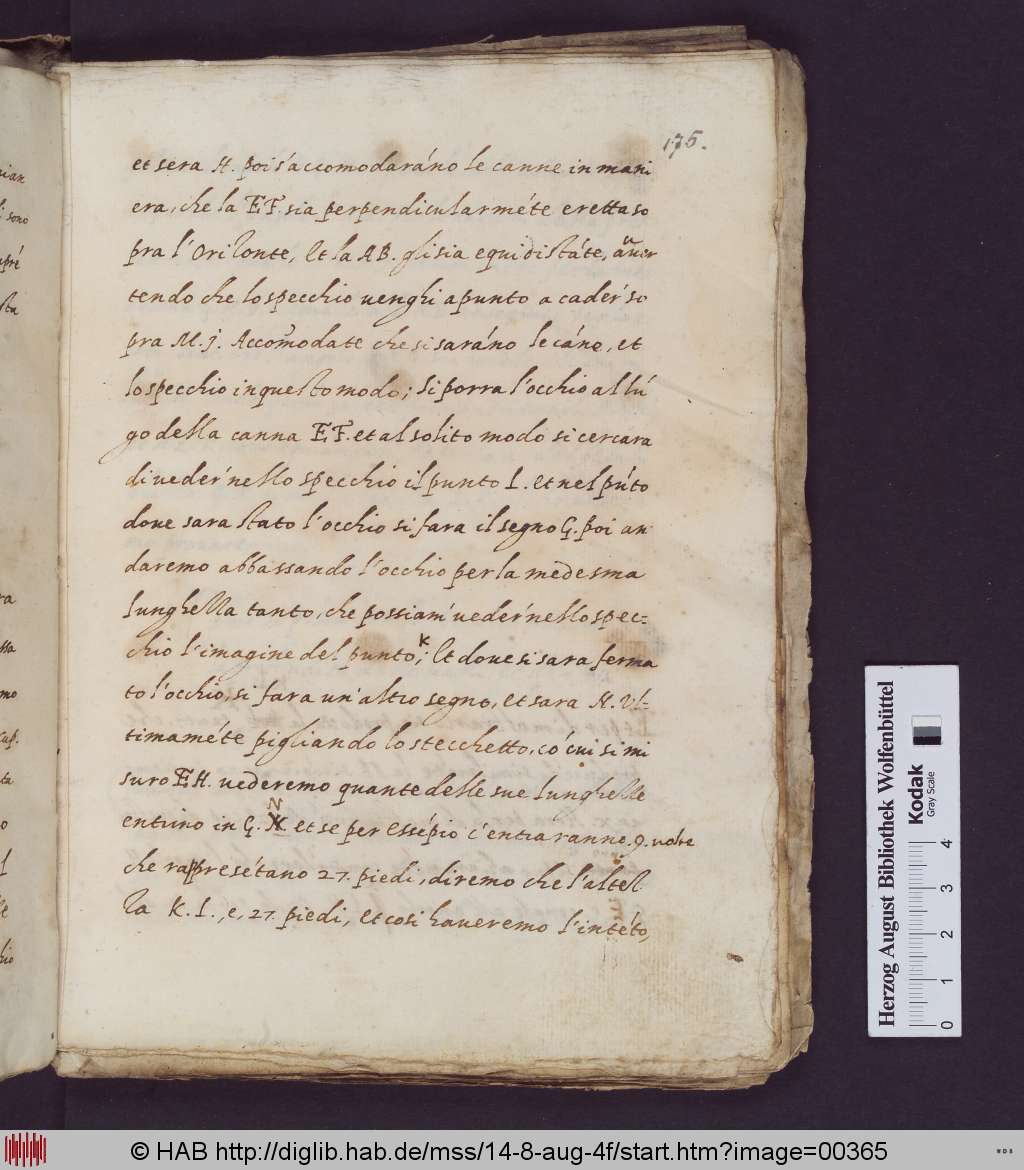 175.
et sera H. poi s'accomodarāno le canne in mani
era, che la E F. sia perpendicularmēte eretta so
pra l'Orizonte, Et la A B. gli sia equidistāte, auer
tendo che lo specchio uenghi apunto a cader so
pra M. j. Accom̃odate che si sarāno le cāne, et
lo specchio in questo modo; Si porra l'occhio al lū
go della canna E F. et al solito modo si cercara
di ueder nello specchio il punto L. et nel pūto
doue sara stato l'occhio si fara il segno G. poi an
daremo abbassando l'occhio per la medesma
lunghella tanto, che possiam ueder nello spec-
chio l'imagine del punto K; Et doue si sara ferma
to l'occhio, si fara un'altro segno, et sara N. Ul-
timamēte pigliando lo stecchetto, cō cui si mi
suro E H. uederemo quante delle sue lunghelle
entrino in G. N et se per Essēpio c'entraranno .9. uolte
che rappresētano 27. piedi, diremo che l'altez
za K. L., e, 27. piedi, et cosi haueremo l'intēto,
ian
i sono
pré
sta
ra
ssa
mo
cap.
ta
o
l
le
hio
Herzog August Bibliothek Wolfenbüttel
Kodak
Gray Scale
0 1 2 3 4
© HAB http://diglib.hab.de/mss/14-8-aug-4f/start.htm?image=00365